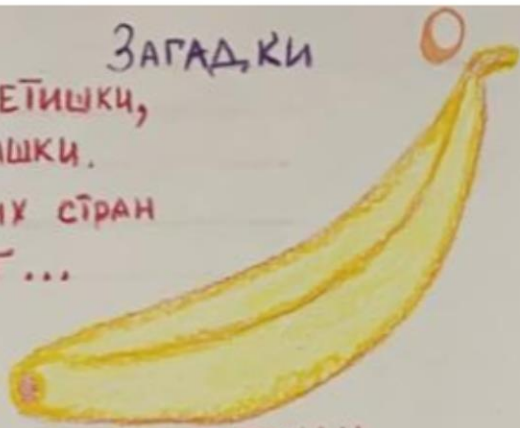 Загадки О
етишки,
ишки.
их стран
...